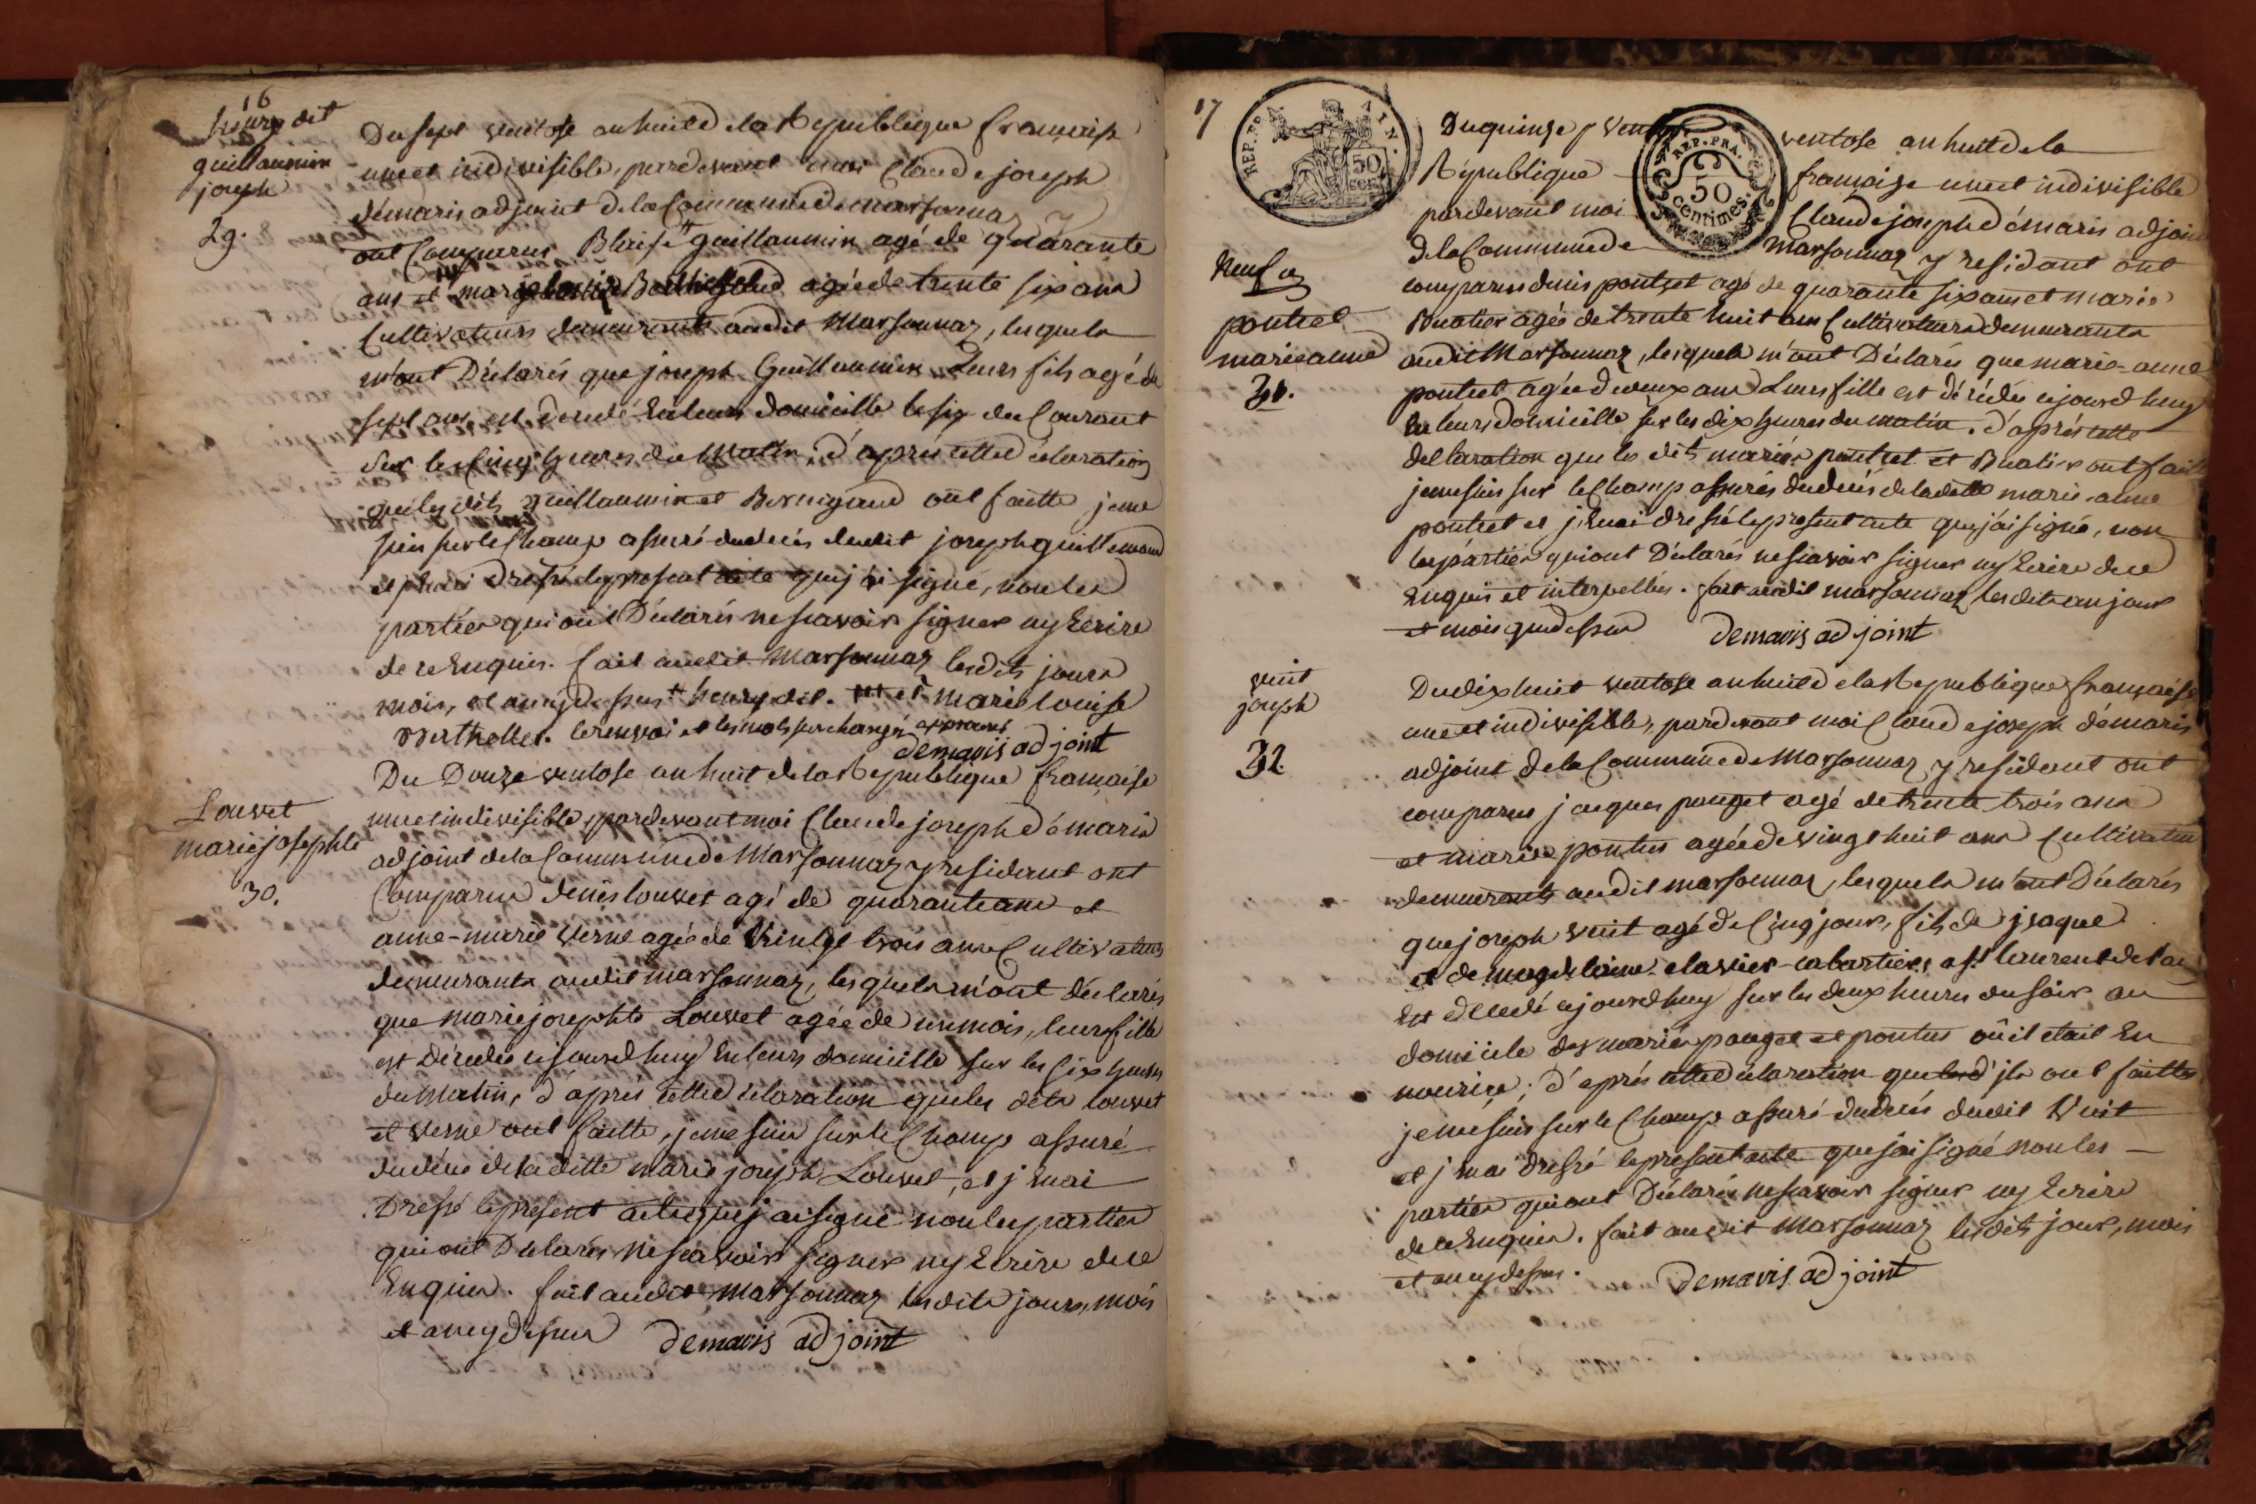 16
henry dit
guillaumin
joseph
29.
Du sept ventose an huit de la Republique francaise
une et indivisible, pardevant moi Claude joseph
démaris adjoint de la Commune de marsonnaz
ont Comparus Blaise guillaumin agé de quarante
ans et marie louise agée de trente six ans
Cultivateurs demeurants audit Marsonnaz, lesquels
m'ont Déclarés que joseph Guillaumin Leurs fils agé de
sept ans est décedé En leurs domicille le six du Courant
sur les Cinq heures du Matin, d'aprés cette déclaration
que les dits guillaumin et ont faitte, je me
suis sur le Champ assuré du decés dudit joseph
et j'en ai dressé le present acte que j'ai signé, non les
parties qui ont Déclarés ne scavoir signer ny Ecrire
de ce Enquis. fait audit Marsonnaz les dits jours
mois, et an cy dessus henry dit. et marie louise
Berthelet. le renvoi et les mots surchargés approuvés
demaris adjoint
Louvet
marie josephte
30.
Du Douze ventose an huit de la Republique francaise
une et indivisible, pardevant moi Claude joseph démaris
adjoint de la Commune de Marsonnaz y residant ont
Comparus denis louvet agé de quarante ans et
anne-marie verne agée de trois ans Cultivateurs
demeurants audit marsonnaz, lesquels m'ont déclarés
que marie josephte Louvet agée de un mois, leurs fille
est Décedée cejourd'huy En leurs domicille sur les six heures
du Matin, d'aprés cette déclaration que les dits louvet
et verne ont faitte, je me suis sur le Champ assuré
du décés de la ditte marie joseph Louvet, et j'en ai
Dressé le present acte que j'ai signé non les parties
qui ont Déclarés ne scavoir signer ny Ecrire de ce
Enquis. fait audit marsonnaz les dits jours, mois
et an cy dessus demaris adjoint
17
REP. FRA.
AIN.
50
cen.
REP. FRA.
50
centimes.
Du quinze ventose an huit de la
République francaise une et indivisible
pardevant moi Claude joseph démaris adjoint
de la Commune de Marsonnaz y residant ont
pontet
marie anne
31.
comparus denis pontet agé de quarante six ans et marie
Buatier agée de trente huit ans Cultivateurs demeurants
audit Marsonnaz, lesquels m'ont Déclarés que marie-anne
pontet agée de deux ans Leurs fille est décédée cejourd'huy
En leurs domicille sur les dix heures du matin. d'aprés cette
declaration que les dits mariés pontet et Buatier ont faitte
je me suis sur le Champ assurés du decés de la ditte marie-anne
pontet et j'en ai dressé le present acte que j'ai signé, non
les parties qui ont Déclarés ne scavoir signer ny Ecrire de ce
Enquis et interpellés. fait audit marsonnaz les dits an jour
et mois que dessus demaris adjoint
vuit
joseph
32
Du dix huit ventose an huit de la Republique francaise
une et indivisible, pardevant moi Claude joseph démaris
adjoint de la Commune de Marsonnaz y residant ont
comparus jacques pauget agé de trente trois ans
et marie pontus agée de vingt huit ans Cultivateurs
demeurants audit marsonnaz, lesquels m'ont Déclarés
que joseph vuit agé de Cinq jours, fils de jsaque
et de magdelaine clavier cabartiers a st laurent de l'ain
Est décedé cejourd'huy sur les deux heures du soir au
domicile des mariés pauget et pontus où il etait En
nourice; d'aprés cette déclaration que ils ont faitte
je me suis sur le Champ assuré du decés dudit Vuit
et j'en ai dressé le present acte que j'ai signé non les
parties qui ont Déclarés ne scavoir signer ny Ecrire
de ce Enquis. fait audit Marsonnaz les dits jour, mois
et an cy dessus. demaris adjoint